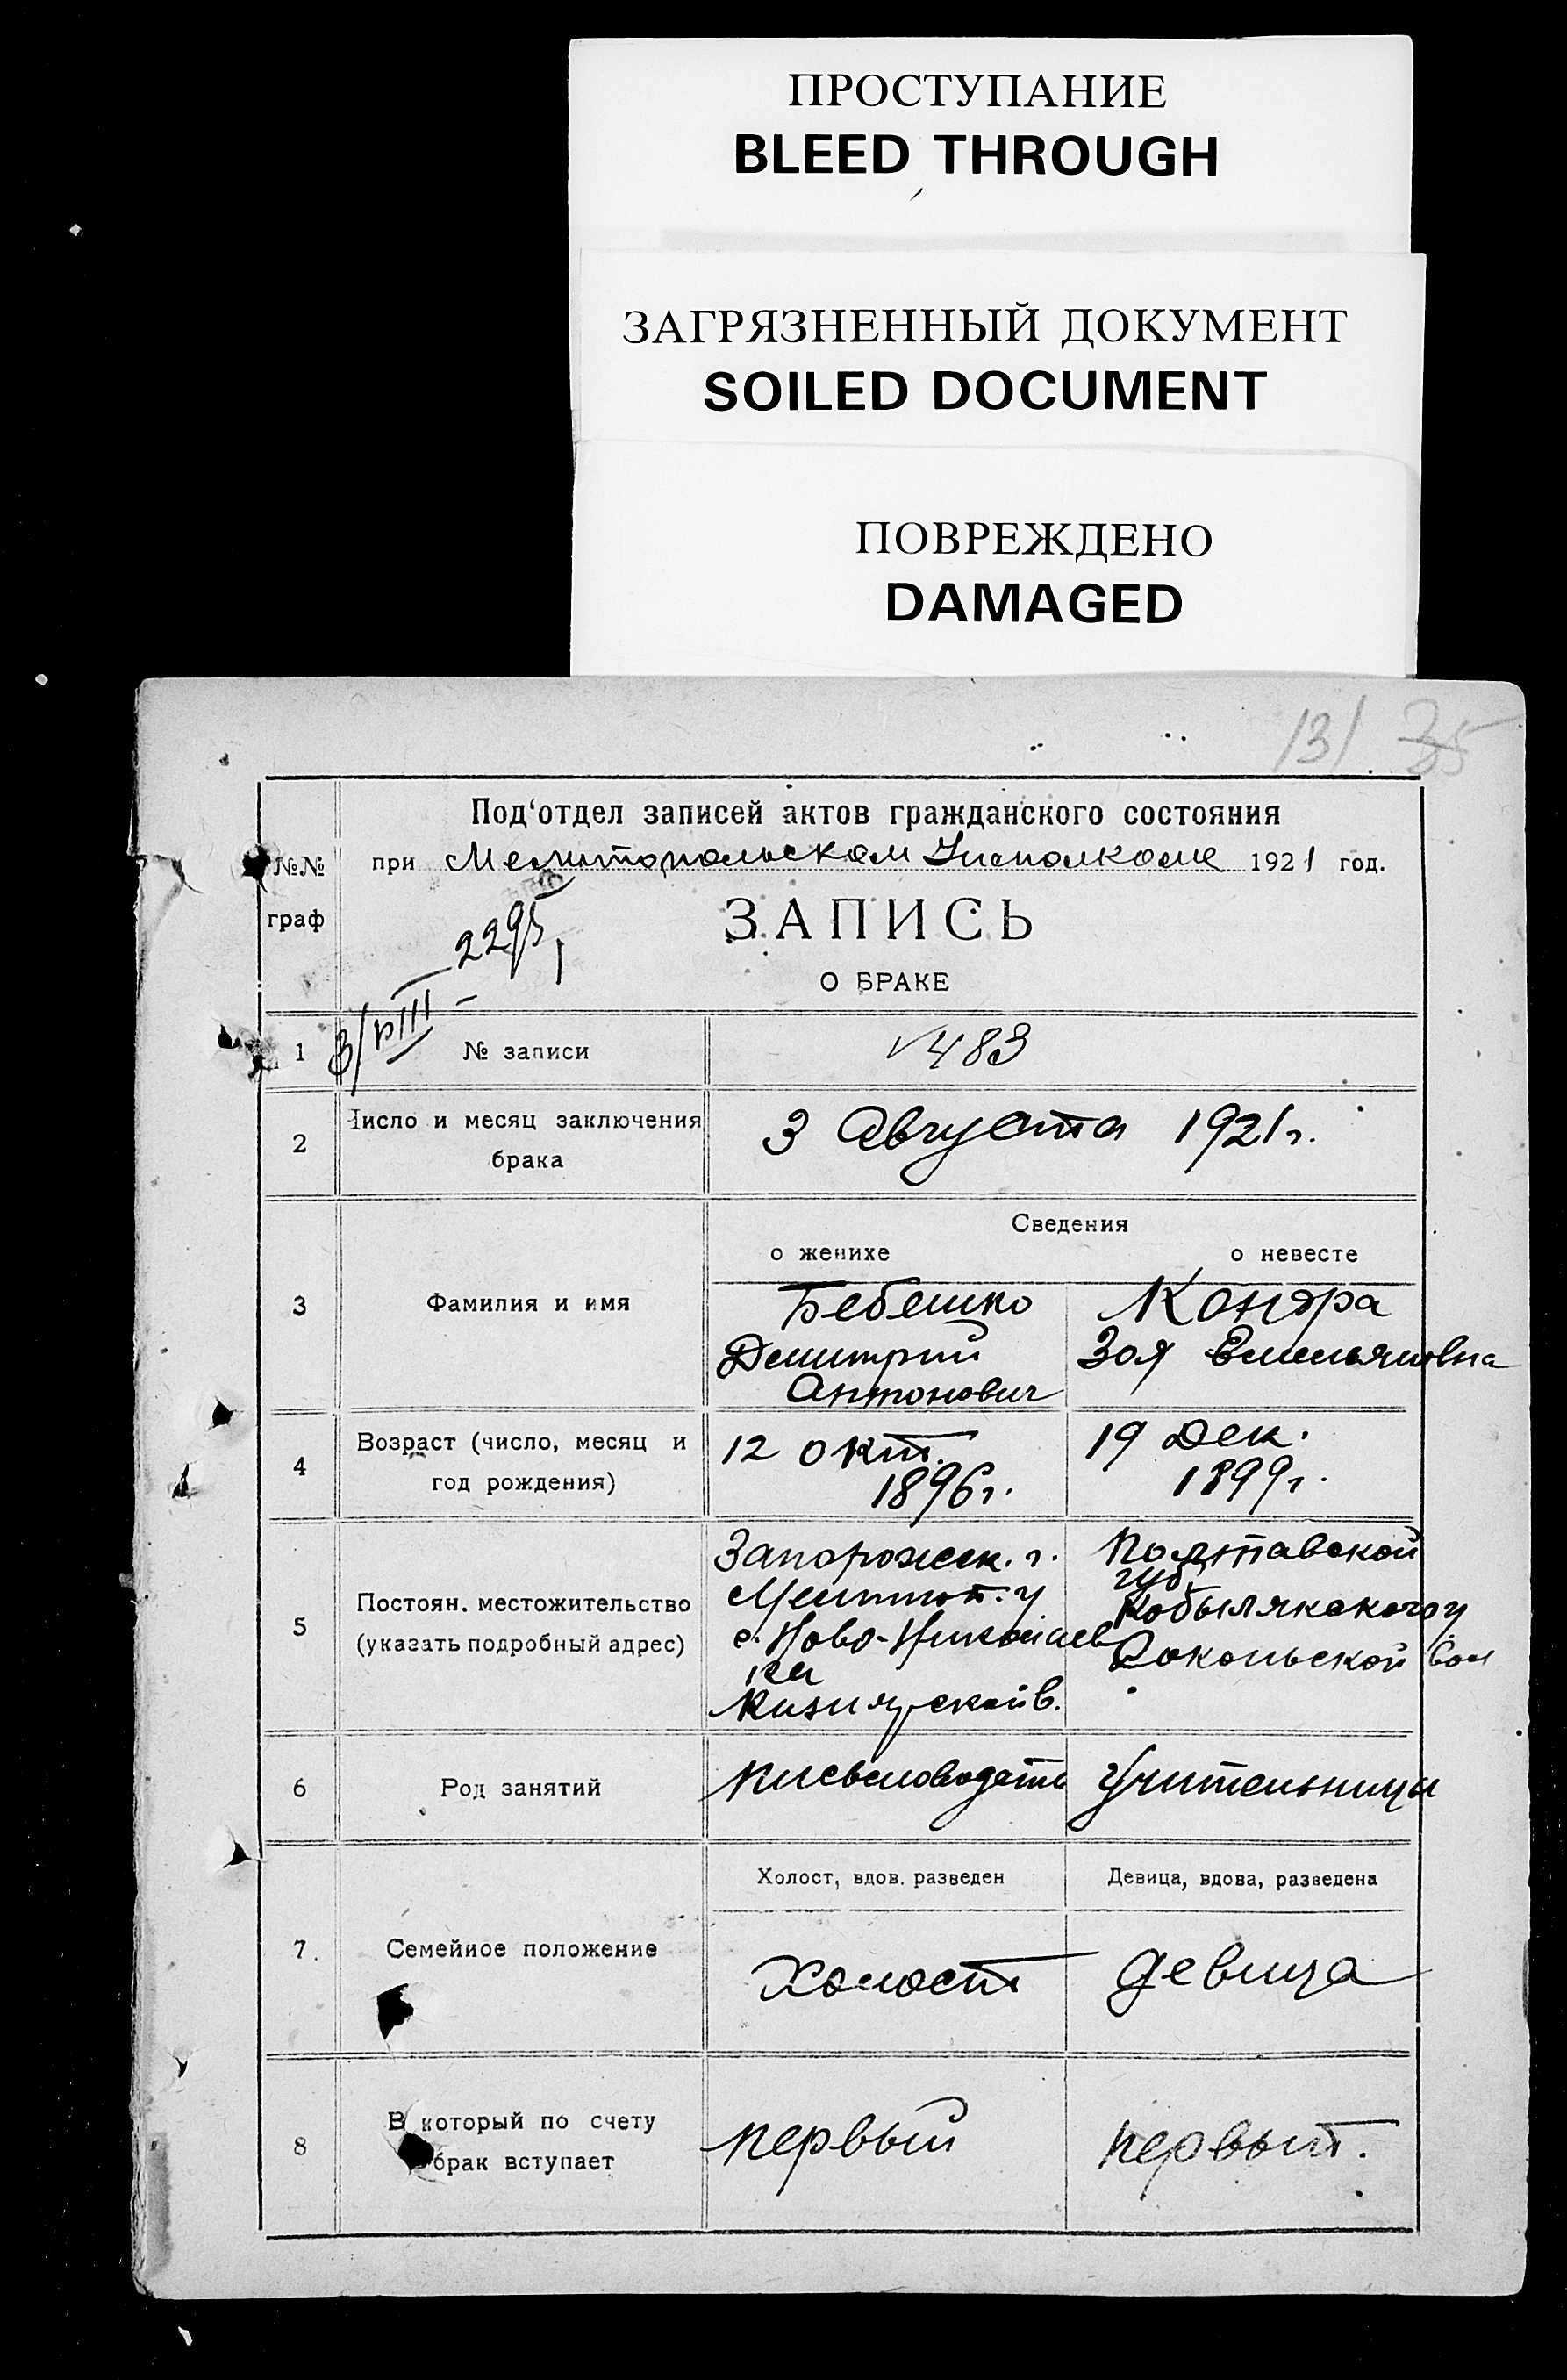 ПРОСТУПАНИЕ
BLEED THROUGH
ЗАГРЯЗНЕННЫЙ ДОКУМЕНТ
SOILED DOCUMENT
ПОВРЕЖДЕНО
DAMAGED
131 35
Под'отдел записей актов гражданского состояния
№№ граф
при Мелитопольском Исполкоме 1921 год.
2295
ЗАПИСЬ
О БРАКЕ
3/VIII
1 № записи √483
2 Число и месяц заключения брака 3 Августа 1921г.
Сведения
о женихе о невесте
3 Фамилия и имя
Бебешко Кондра
Димитрий Зоя Емельяновна
Антонович
4 Возраст (число, месяц и год рождения)
12 окт. 19 Дек.
1896г. 1899г.
5 Постоян. местожительство (указать подробный адрес)
Запорожск. г. Полтавской
губ.
Мелитоп. у Кобылякского у
с. Ново-Николаев Сокольской вол
ка
Кизиярской в.
6 Род занятий Письмоводит. Учительница
Холост, вдов. разведен Девица, вдова, разведена
7. Семейное положение Холост девица
8 В который по счету брак вступает первый первый.